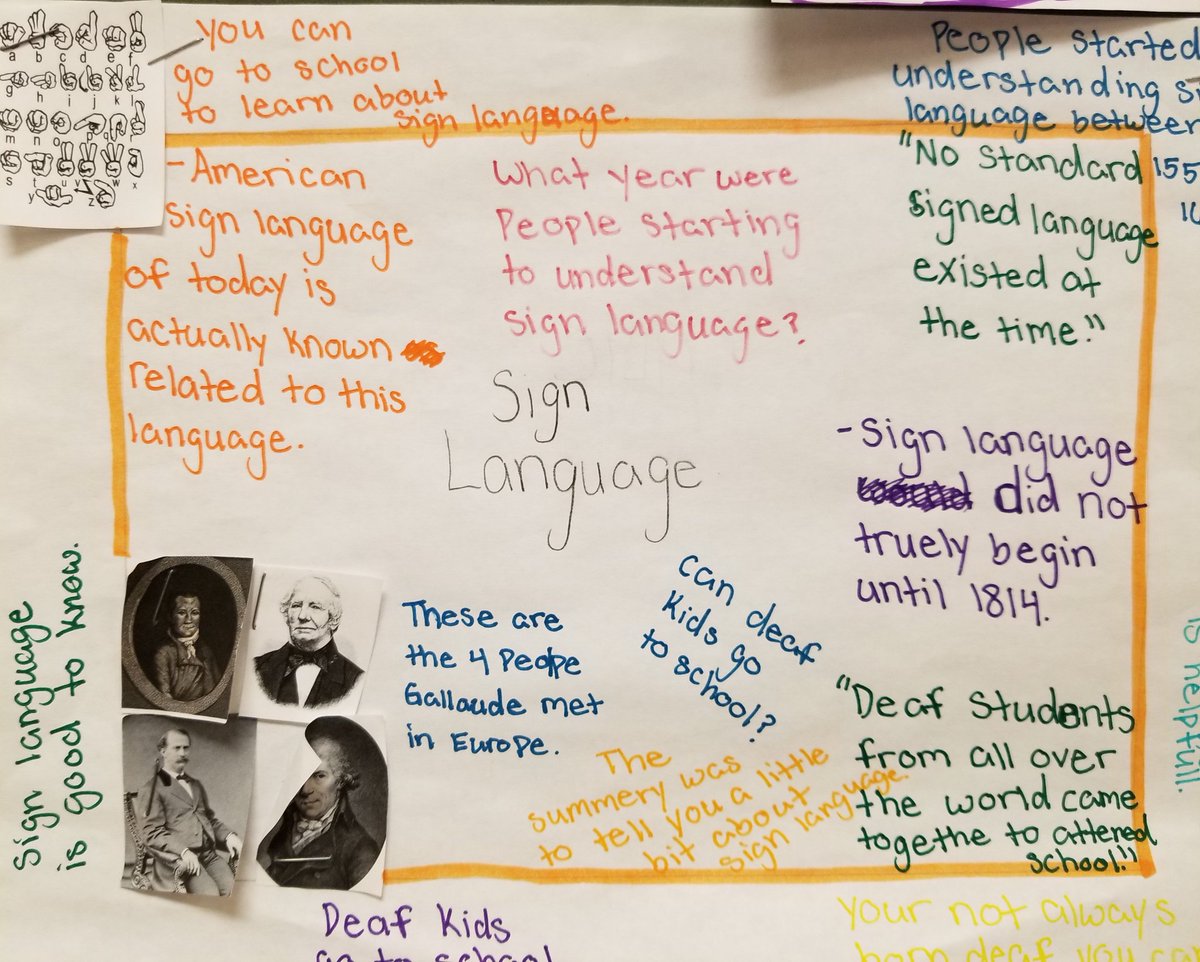 a b c d e f
g h i j k l
m n o p q r
s t u v w x
y z
you can
go to school
to learn about
sign language.
People started
understanding
language between
155
- American
sign language
of today is
actually known
related to this
language.
What year were
People starting
to understand
sign language?
"No standard
signed language
existed at
the time."
Sign
Language
- Sign language
did not
truely begin
until 1814.
Sign language
is good to know.
These are
the 4 People
Gallaude met
in Europe.
can deaf
kids go
to school?
The
summery was
to tell you a little
bit about
sign language.
"Deaf Students
from all over
the world came
togethe to attened
school."
to helpfull.
Deaf Kids
go to school
Your not always
born deaf you can